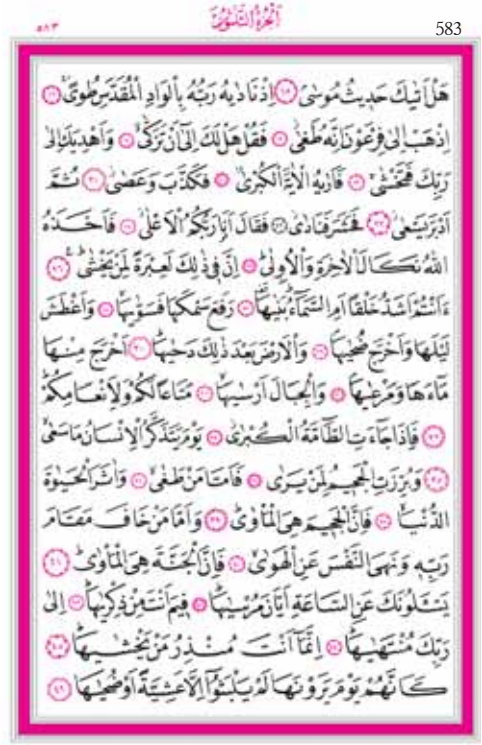 اَلْجُزْءُ الثَّلَاثُونَ
٥٨٣
583
هَلْ اَتٰيكَ حَد۪يثُ مُوسٰىۢ ﴿١٥﴾ اِذْ نَادٰيهُ رَبُّهُ بِالْوَادِ الْمُقَدَّسِ طُوًىۚ ﴿١٦﴾
اِذْهَبْ اِلٰى فِرْعَوْنَ اِنَّهُ طَغٰىۘ ﴿١٧﴾ فَقُلْ هَلْ لَكَ اِلٰٓى اَنْ تَزَكّٰىۙ ﴿١٨﴾ وَاَهْدِيَكَ اِلٰى
رَبِّكَ فَتَخْشٰىۚ ﴿١٩﴾ فَاَرٰيهُ الْاٰيَةَ الْكُبْرٰىۘ ﴿٢٠﴾ فَكَذَّبَ وَعَصٰىۘ ﴿٢١﴾ ثُمَّ
اَدْبَرَ يَسْعٰىۘ ﴿٢٢﴾ فَحَشَرَ فَنَادٰىۘ ﴿٢٣﴾ فَقَالَ اَنَا۬ رَبُّكُمُ الْاَعْلٰىۘ ﴿٢٤﴾ فَاَخَذَهُ
اللّٰهُ نَكَالَ الْاٰخِرَةِ وَالْاُو۫لٰىۜ ﴿٢٥﴾ اِنَّ ف۪ي ذٰلِكَ لَعِبْرَةً لِمَنْ يَخْشٰىۜ ﴿٢٦﴾
ءَاَنْتُمْ اَشَدُّ خَلْقًا اَمِ السَّمَٓاءُۜ بَنٰيهَا۠ ﴿٢٧﴾ رَفَعَ سَمْكَهَا فَسَوّٰيهَاۙ ﴿٢٨﴾ وَاَغْطَشَ
لَيْلَهَا وَاَخْرَجَ ضُحٰيهَاۖ ﴿٢٩﴾ وَالْاَرْضَ بَعْدَ ذٰلِكَ دَحٰيهَاۜ ﴿٣٠﴾ اَخْرَجَ مِنْهَا
مَٓاءَهَا وَمَرْعٰيهَاۖ ﴿٣١﴾ وَالْجِبَالَ اَرْسٰيهَاۙ ﴿٣٢﴾ مَتَاعًا لَكُمْ وَلِاَنْعَامِكُمْۜ
﴿٣٣﴾ فَاِذَا جَٓاءَتِ الطَّٓامَّةُ الْكُبْرٰىۘ ﴿٣٤﴾ يَوْمَ يَتَذَكَّرُ الْاِنْسَانُ مَا سَعٰىۙ
﴿٣٥﴾ وَبُرِّزَتِ الْجَح۪يمُ لِمَنْ يَرٰى ﴿٣٦﴾ فَاَمَّا مَنْ طَغٰىۙ ﴿٣٧﴾ وَاٰثَرَ الْحَيٰوةَ
الدُّنْيَاۙ ﴿٣٨﴾ فَاِنَّ الْجَح۪يمَ هِيَ الْمَأْوٰىۜ ﴿٣٩﴾ وَاَمَّا مَنْ خَافَ مَقَامَ
رَبِّه۪ وَنَهَى النَّفْسَ عَنِ الْهَوٰىۙ ﴿٤٠﴾ فَاِنَّ الْجَنَّةَ هِيَ الْمَأْوٰىۜ ﴿٤١﴾
يَسْـَٔلُونَكَ عَنِ السَّاعَةِ اَيَّانَ مُرْسٰيهَاۜ ﴿٤٢﴾ ف۪يمَ اَنْتَ مِنْ ذِكْرٰيهَاۜ ﴿٤٣﴾ اِلٰى
رَبِّكَ مُنْتَهٰيهَاۜ ﴿٤٤﴾ اِنَّمَٓا اَنْتَ مُنْذِرُ مَنْ يَخْشٰيهَاۜ ﴿٤٥﴾
كَاَنَّهُمْ يَوْمَ يَرَوْنَهَا لَمْ يَلْبَثُٓوا اِلَّا عَشِيَّةً اَوْ ضُحٰيهَا ﴿٤٦﴾